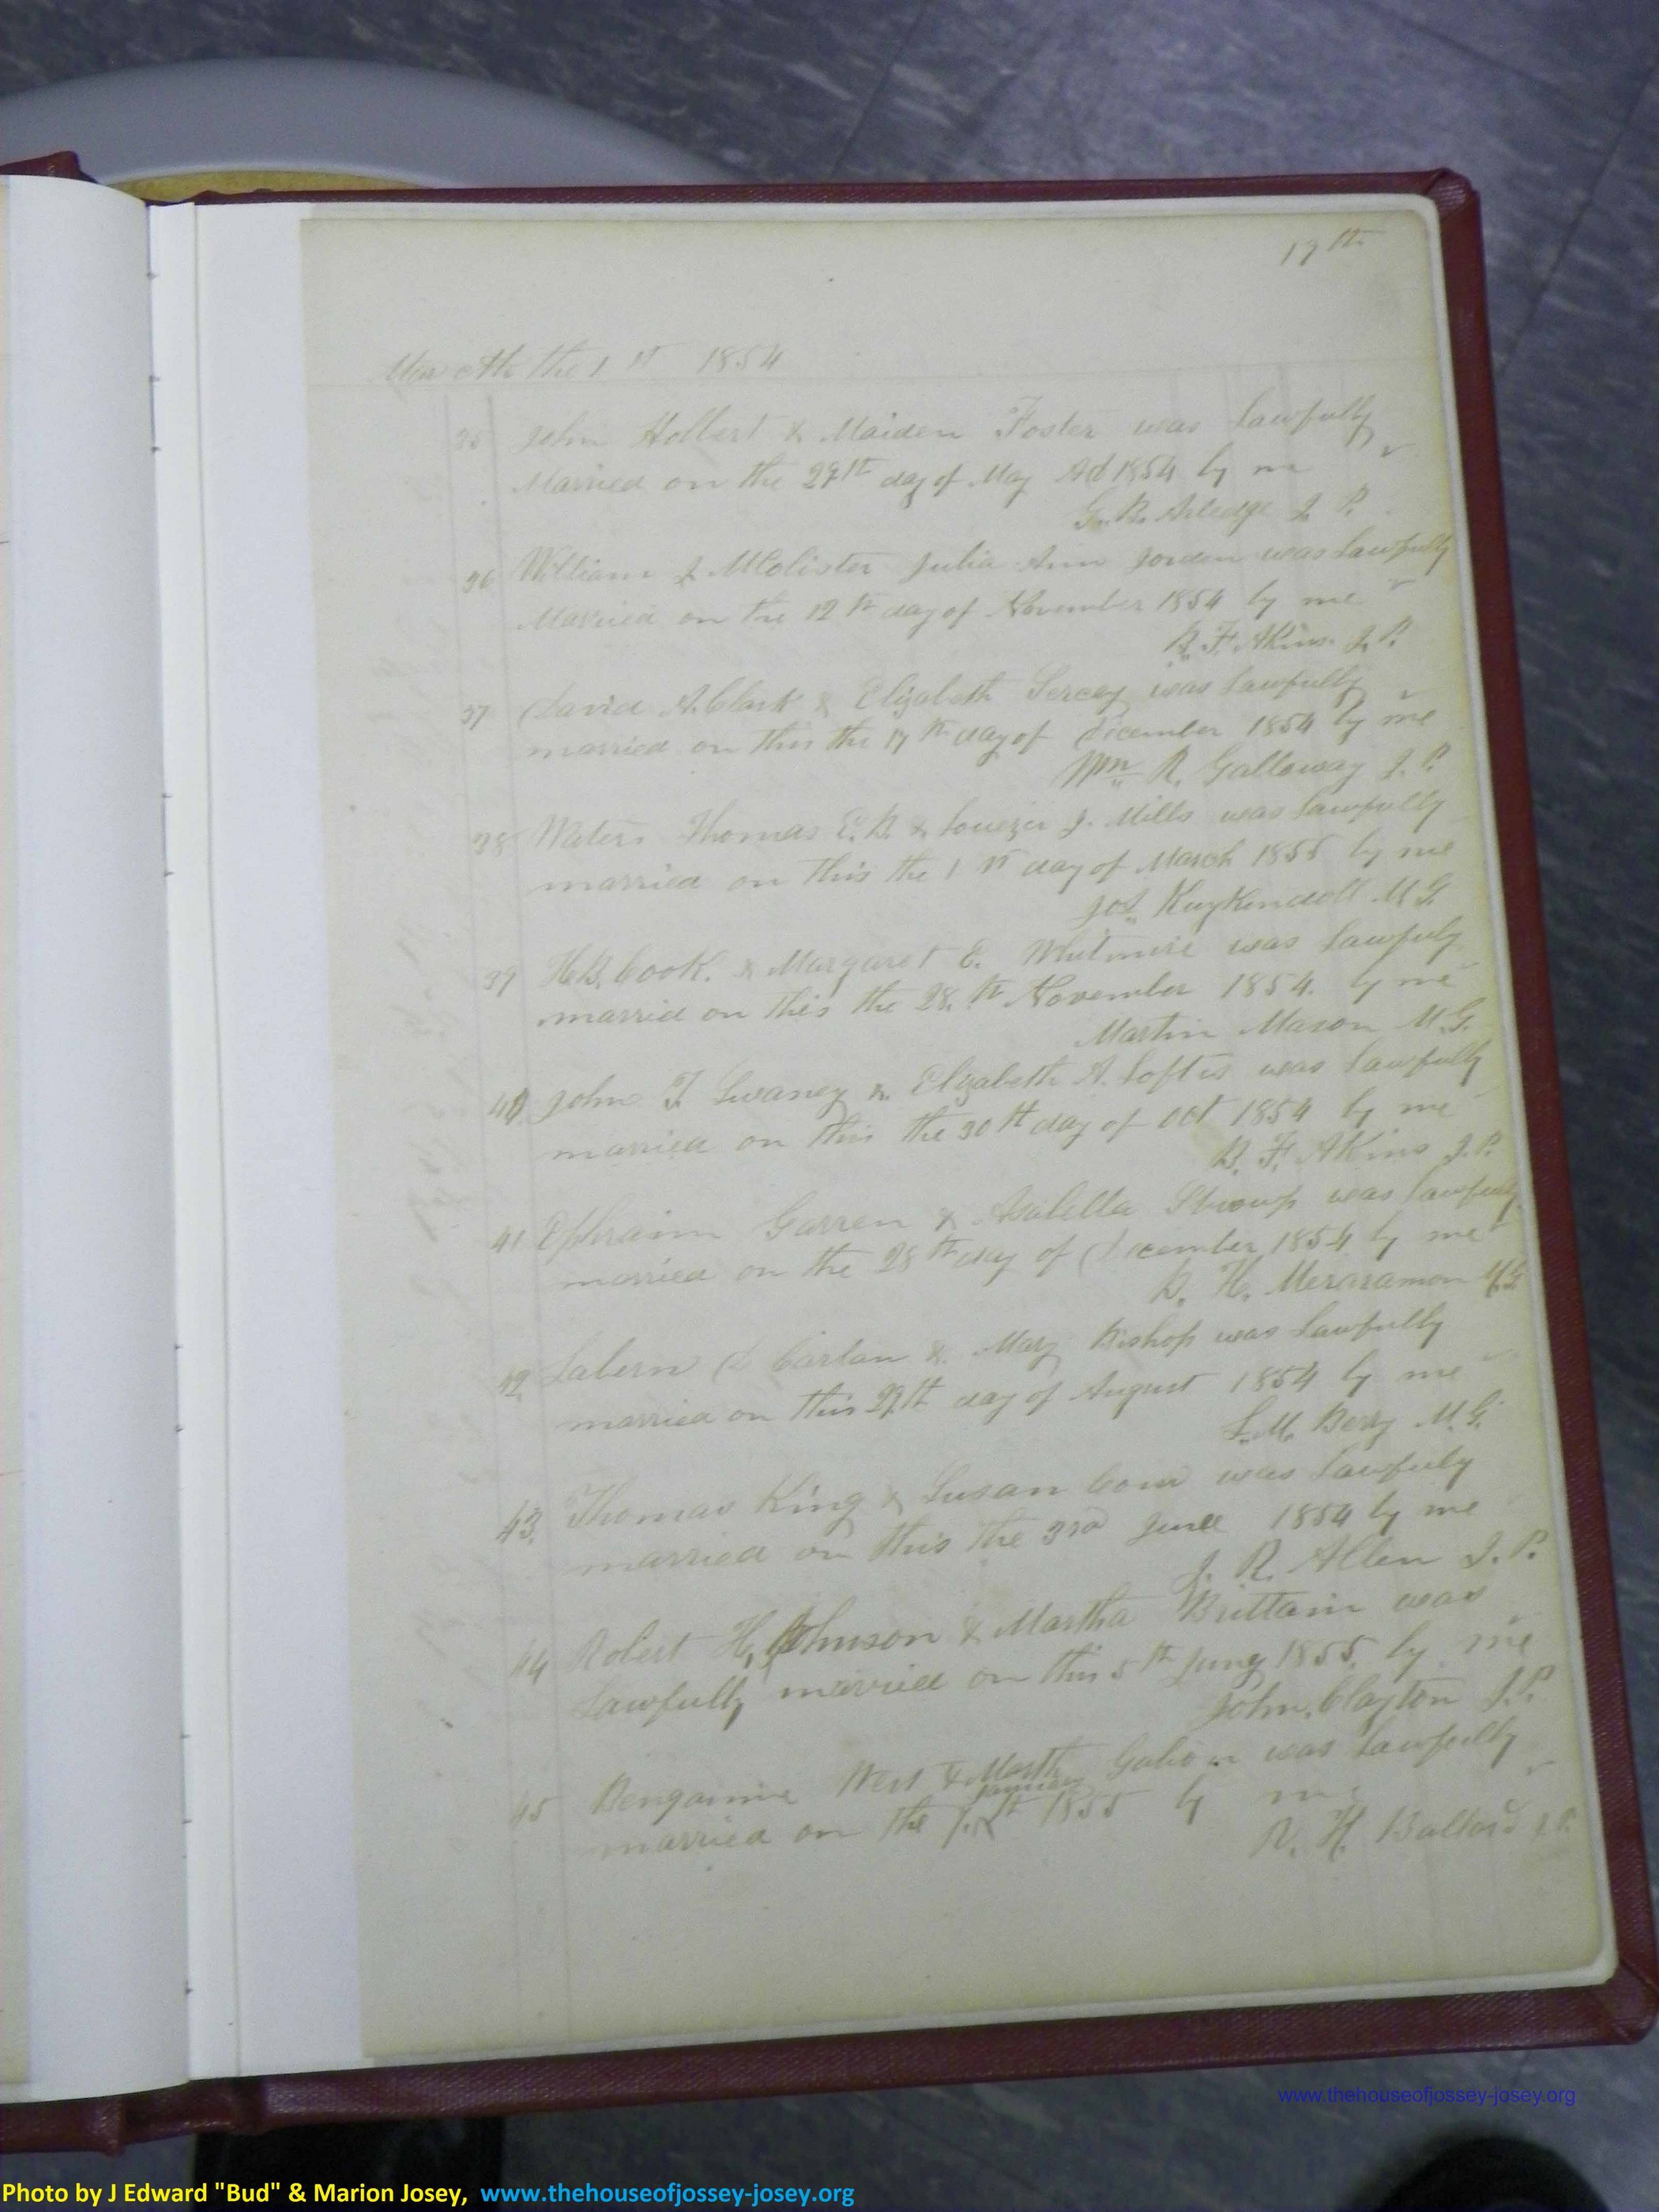 17th
March the 1st 1854
35 John Holbert & Maiden Foster was Lawfully
Married on the 29th day of May Ad 1854 by me
G. B. Arledge J. P.
36 William J McColister Julia Ann Jorden was Lawfully
Married on the 12th day of November 1854 by me
B. F. Akins J. P.
37 David A. Clark & Elizabeth Sercey was Lawfully
married on this the 17th day of December 1854 by me
Wm R. Galloway J. P.
38 Waters Thomas E. B. & J. Mills was Lawfully
married on this the 1st day of March 1855 by me
Jos Kuykendoll M G.
39 H. B. Cook. & Margaret E. Whitmire was Lawfuly
married on this the 28.th November 1854. by me
Martin Mason M. G.
40 John T. Swaney & Elizabeth A. Loftis was Lawfully
married on this the 30th day of Oct 1854 by me
B. F. Akins J. P.
41 Ephraim Garren & Asabella Stroup was Lawfully
married on the 28th day of December 1854 by me
H.
42 Labern D Carlan & Mary Bishop was Lawfully
married on this 29th day of August 1854 by me
L. M. Berry M. G.
43. Thomas King & Susan was Lawfuly
married on this the 3rd June 1854 by me
J. R. Allen J. P.
44 Robert H. Johnson & Martha Brittain was
Lawfully married on this 5th 1855. by me
John. Clayton J. P.
45 Bengamine West & was Lawfully
January
married on the 1855 by me
R. H. Ballard J. P.
www.thehouseofjossey-josey.org
Photo by J Edward "Bud" & Marion Josey, www.thehouseofjossey-josey.org